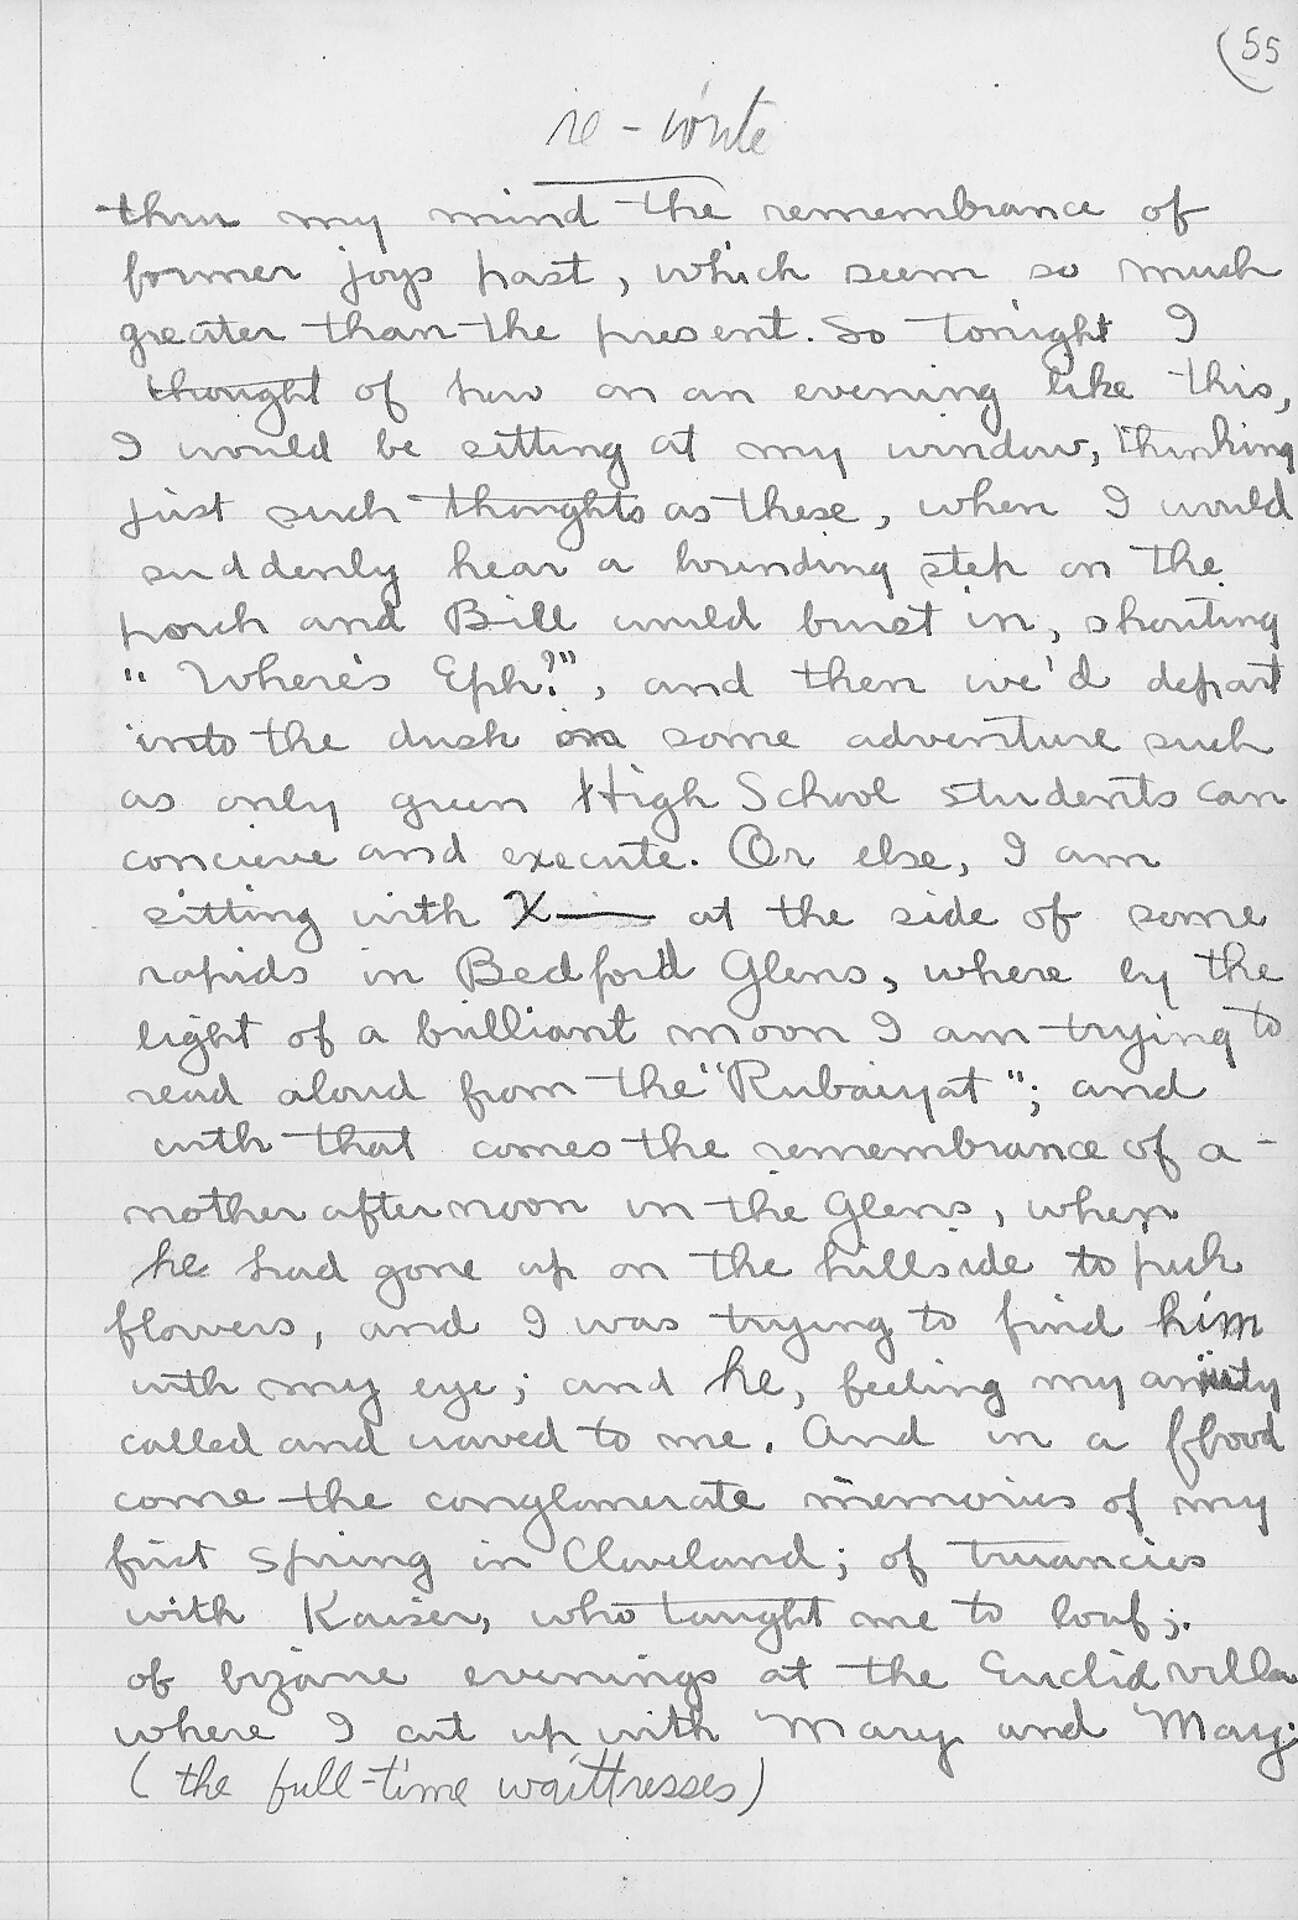 (55
re-route
thru my mind the remembrance of
former joys past, which seem so much
greater than the present. So tonight I
thought of how on an evening like this,
I would be sitting at my window, thinking
just such thoughts as these, when I would
suddenly hear a bounding step on the
porch and Bill would burst in, shouting
"Where's Eph?", and then we'd depart
into the dusk on some adventure such
as only green High School students can
concieve and execute. Or else, I am
sitting with X— at the side of some
rapids in Bedford Glens, where by the
light of a brilliant moon I am trying to
read aloud from the "Rubaiyat"; and
with that comes the remembrance of a-
nother afternoon in the Glens, when
he had gone up on the hillside to pick
flowers, and I was trying to find him
with my eye; and he, feeling my anxiety
called and waved to me. And in a flood
come the conglomerate memories of my
first Spring in Cleveland; of truancies
with Kaiser, who taught me to loaf;
of bizarre evenings at the Euclid villa
where I cut up with Mary and May;
(the full-time waittresses)